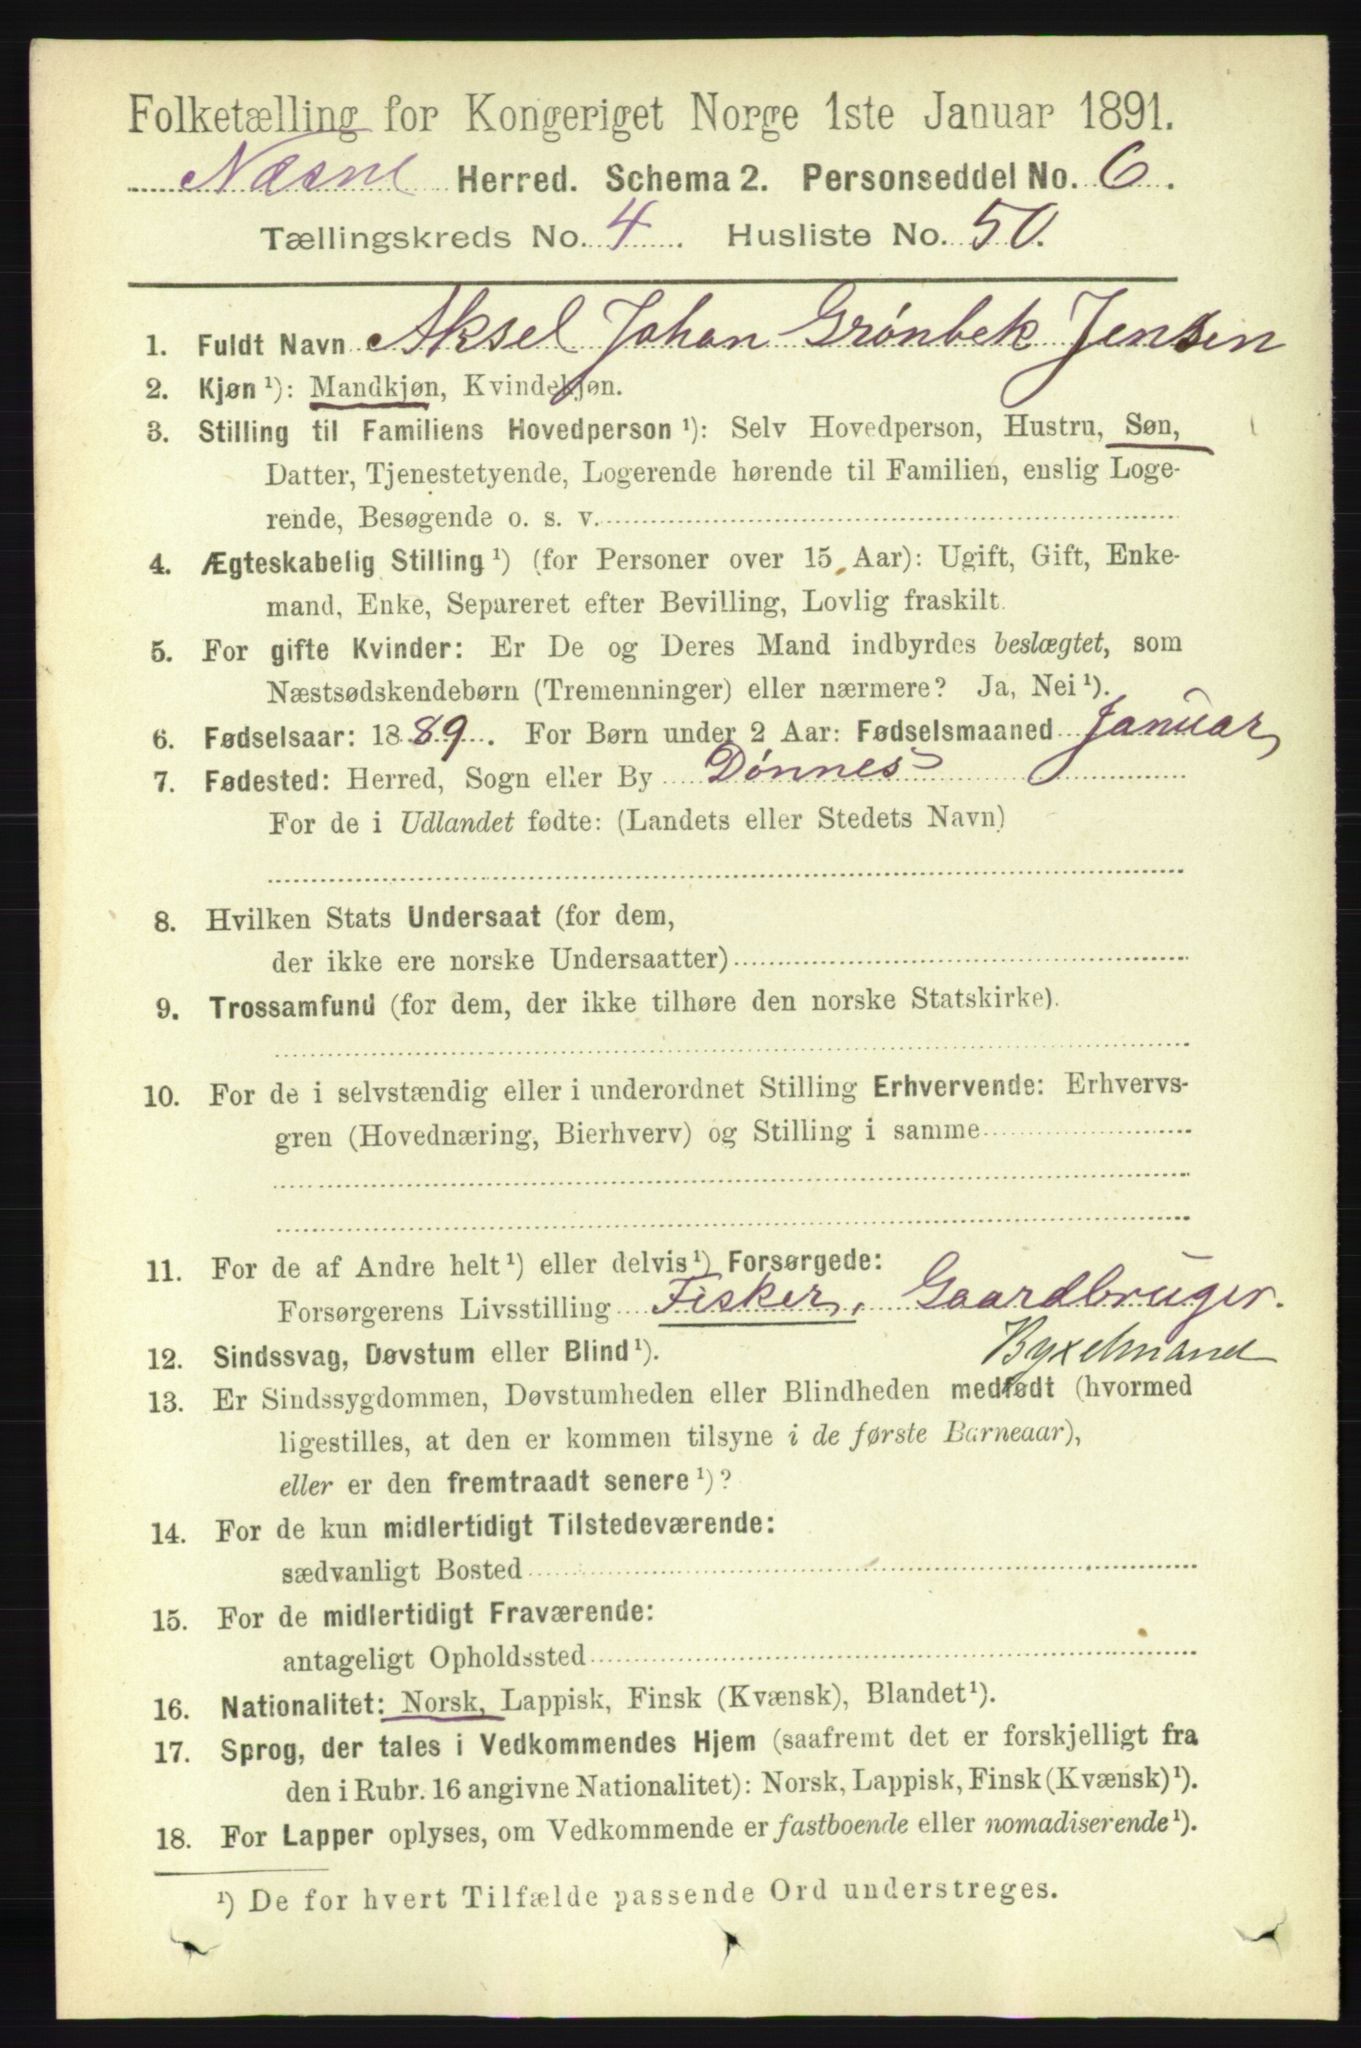 Folketælling for Kongeriget Norge 1ste Januar 1891.
Næsne Herred. Schema 2. Personseddel No. 6.
Tællingskreds No. 4. Husliste No. 50.
1. Fuldt Navn Aksel Johan Grønbek Jensen
2. Kjøn¹): Mandkjøn, Kvindekjøn.
3. Stilling til Familiens Hovedperson¹): Selv Hovedperson, Hustru, Søn,
Datter, Tjenestetyende, Logerende hørende til Familien, enslig Loge-
rende, Besøgende o. s. v.
4. Ægteskabelig Stilling¹) (for Personer over 15 Aar): Ugift, Gift, Enke-
mand, Enke, Separeret efter Bevilling, Lovlig fraskilt.
5. For gifte Kvinder: Er De og Deres Mand indbyrdes beslægtet, som
Næstsødskendebørn (Tremenninger) eller nærmere? Ja, Nei¹).
6. Fødselsaar: 1889. For Børn under 2 Aar: Fødselsmaaned Januar
7. Fødested: Herred, Sogn eller By Dønnes
For de i Udlandet fødte: (Landets eller Stedets Navn)
8. Hvilken Stats Undersaat (for dem,
der ikke ere norske Undersaatter)
9. Trossamfund (for dem, der ikke tilhøre den norske Statskirke).
10. For de i selvstændig eller i underordnet Stilling Erhvervende: Erhvervs-
gren (Hovednæring, Bierhverv) og Stilling i samme
11. For de af Andre helt¹) eller delvis¹) Forsørgede:
Forsørgerens Livsstilling Fisker, Gaardbruger.
12. Sindssvag, Døvstum eller Blind¹). Byxelmand
13. Er Sindssygdommen, Døvstumheden eller Blindheden medfødt (hvormed
ligestilles, at den er kommen tilsyne i de første Barneaar),
eller er den fremtraadt senere¹)?
14. For de kun midlertidigt Tilstedeværende:
sædvanligt Bosted
15. For de midlertidigt Fraværende:
antageligt Opholdssted
16. Nationalitet: Norsk, Lappisk, Finsk (Kvænsk), Blandet¹).
17. Sprog, der tales i Vedkommendes Hjem (saafremt det er forskjelligt fra
den i Rubr. 16 angivne Nationalitet): Norsk, Lappisk, Finsk (Kvænsk)¹).
18. For Lapper oplyses, om Vedkommende er fastboende eller nomadiserende¹).
¹) De for hvert Tilfælde passende Ord understreges.